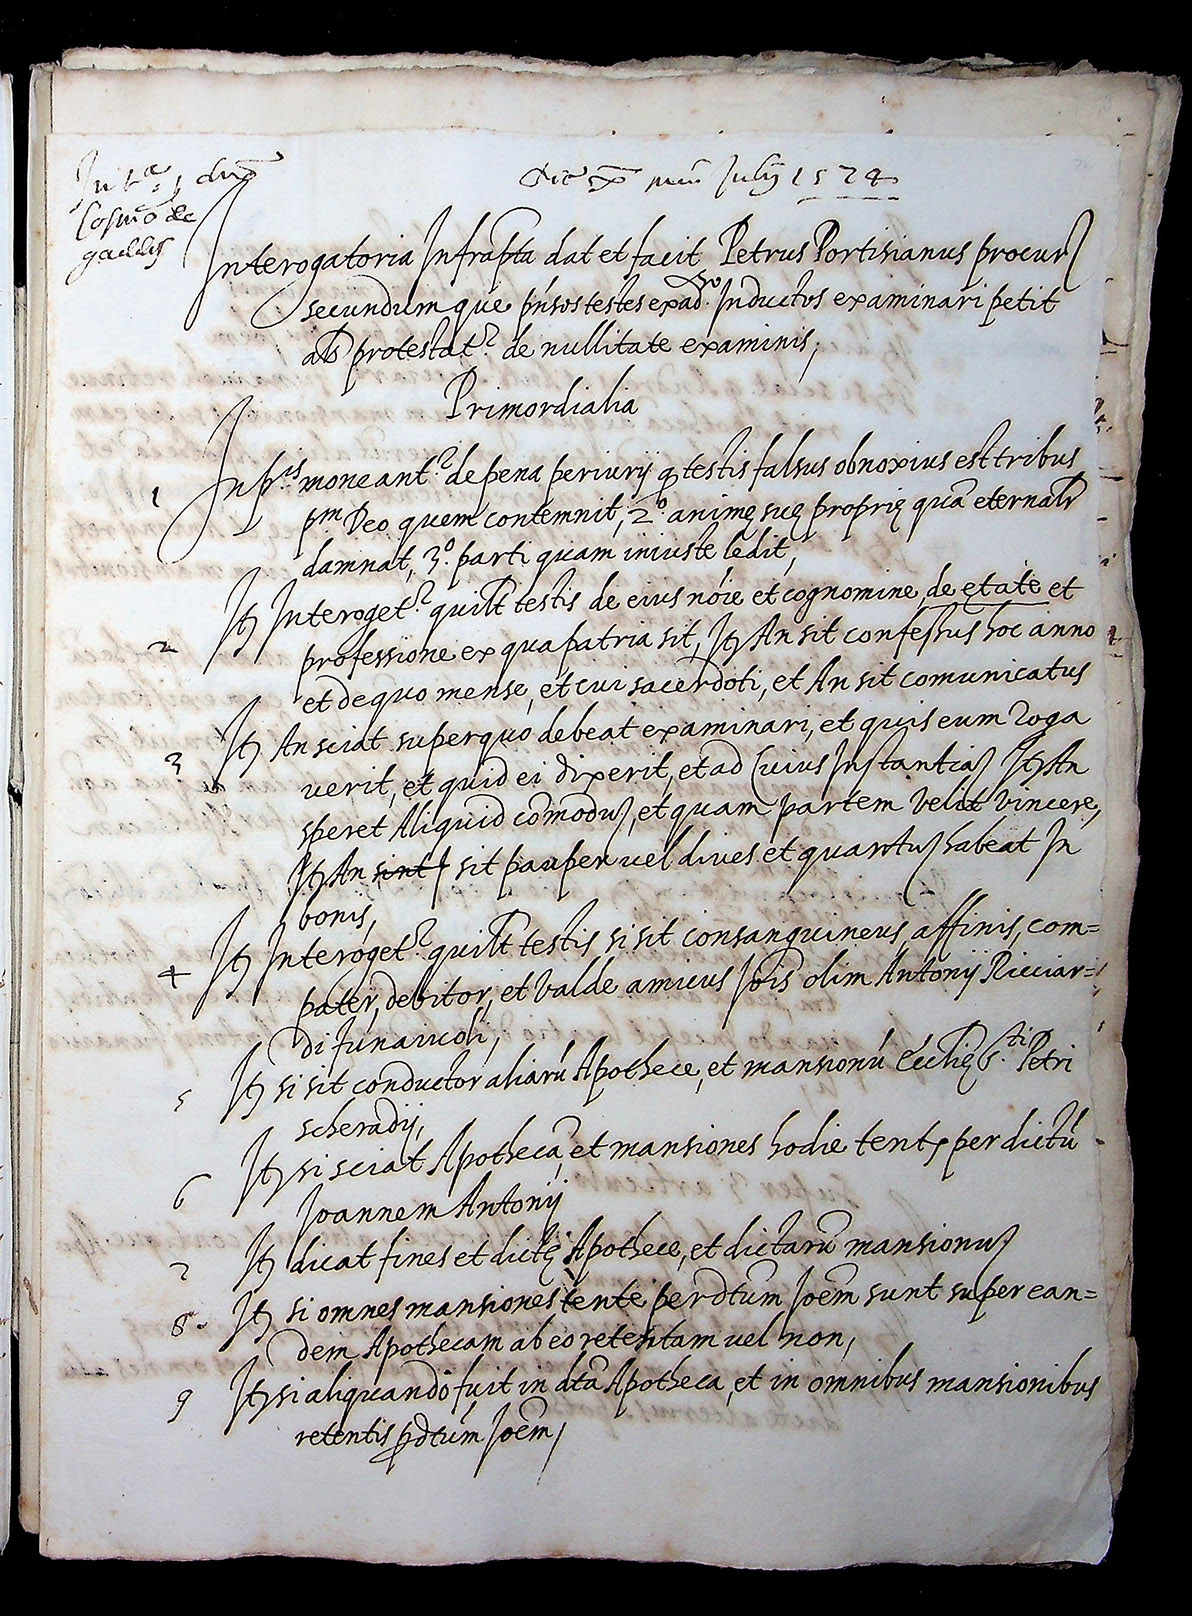 Die x mensis Julij 1574
Int.a 1 dno
Cosmo de
gaddis
Interogatoria Infrapta dat et facit Petrus Portisianus procur
secundum que pnsos testes ex adso Inductos examinari petit
als protestatr de nullitate examinis,
Primordialia
1 In pris moneantr de pena periurij q testis falsus obnoxius est tribus
pm Deo quem contemnit, 2o. animę suę proprię quā eternalr
damnat, 3o. parti quam iniuste ledit,
2 Itz Interogetr quilt testis de eius nōie et cognomine, de etate et
professione ex qua patria sit, Itz An sit confessus hoc anno
et de quo mense, et cui sacerdoti, et An sit comunicatus
3 Itz An sciat super quo debeat examinari, et quis eum roga
verit, et quid ei dixerit, et ad cuius Instantiaz Itz An
speret Aliquid cōmoduz, et quam partem velit vincere,
Itz An sint sit pauper vel dives et quantuz habeat In
bonis,
4 Itz Interogetr quilt testis si sit consanguineus, affinis, com=
pater, debitor, et valde amicus Jois olim Antonij Ricciar=
di funaivoli,
5 Itz si sit conductor aliarū Apothece, et mansionū Ecclię S.ti Petri
scheradij,
6 Itz si sciat Apothecā et mansiones hodie tent. per dictū
Joannem Antonij
7 Itz dicat fines et dictę Apothece, et dictarū mansionuz
8. Itz si omnes mansiones tente per dtum Joem sunt super ean=
dem Apothecam ab eo retentam vel non,
9 Itz si aliquando fuit in dta Apotheca, et in omnibus mansionibus
retentis p dtum Joem,